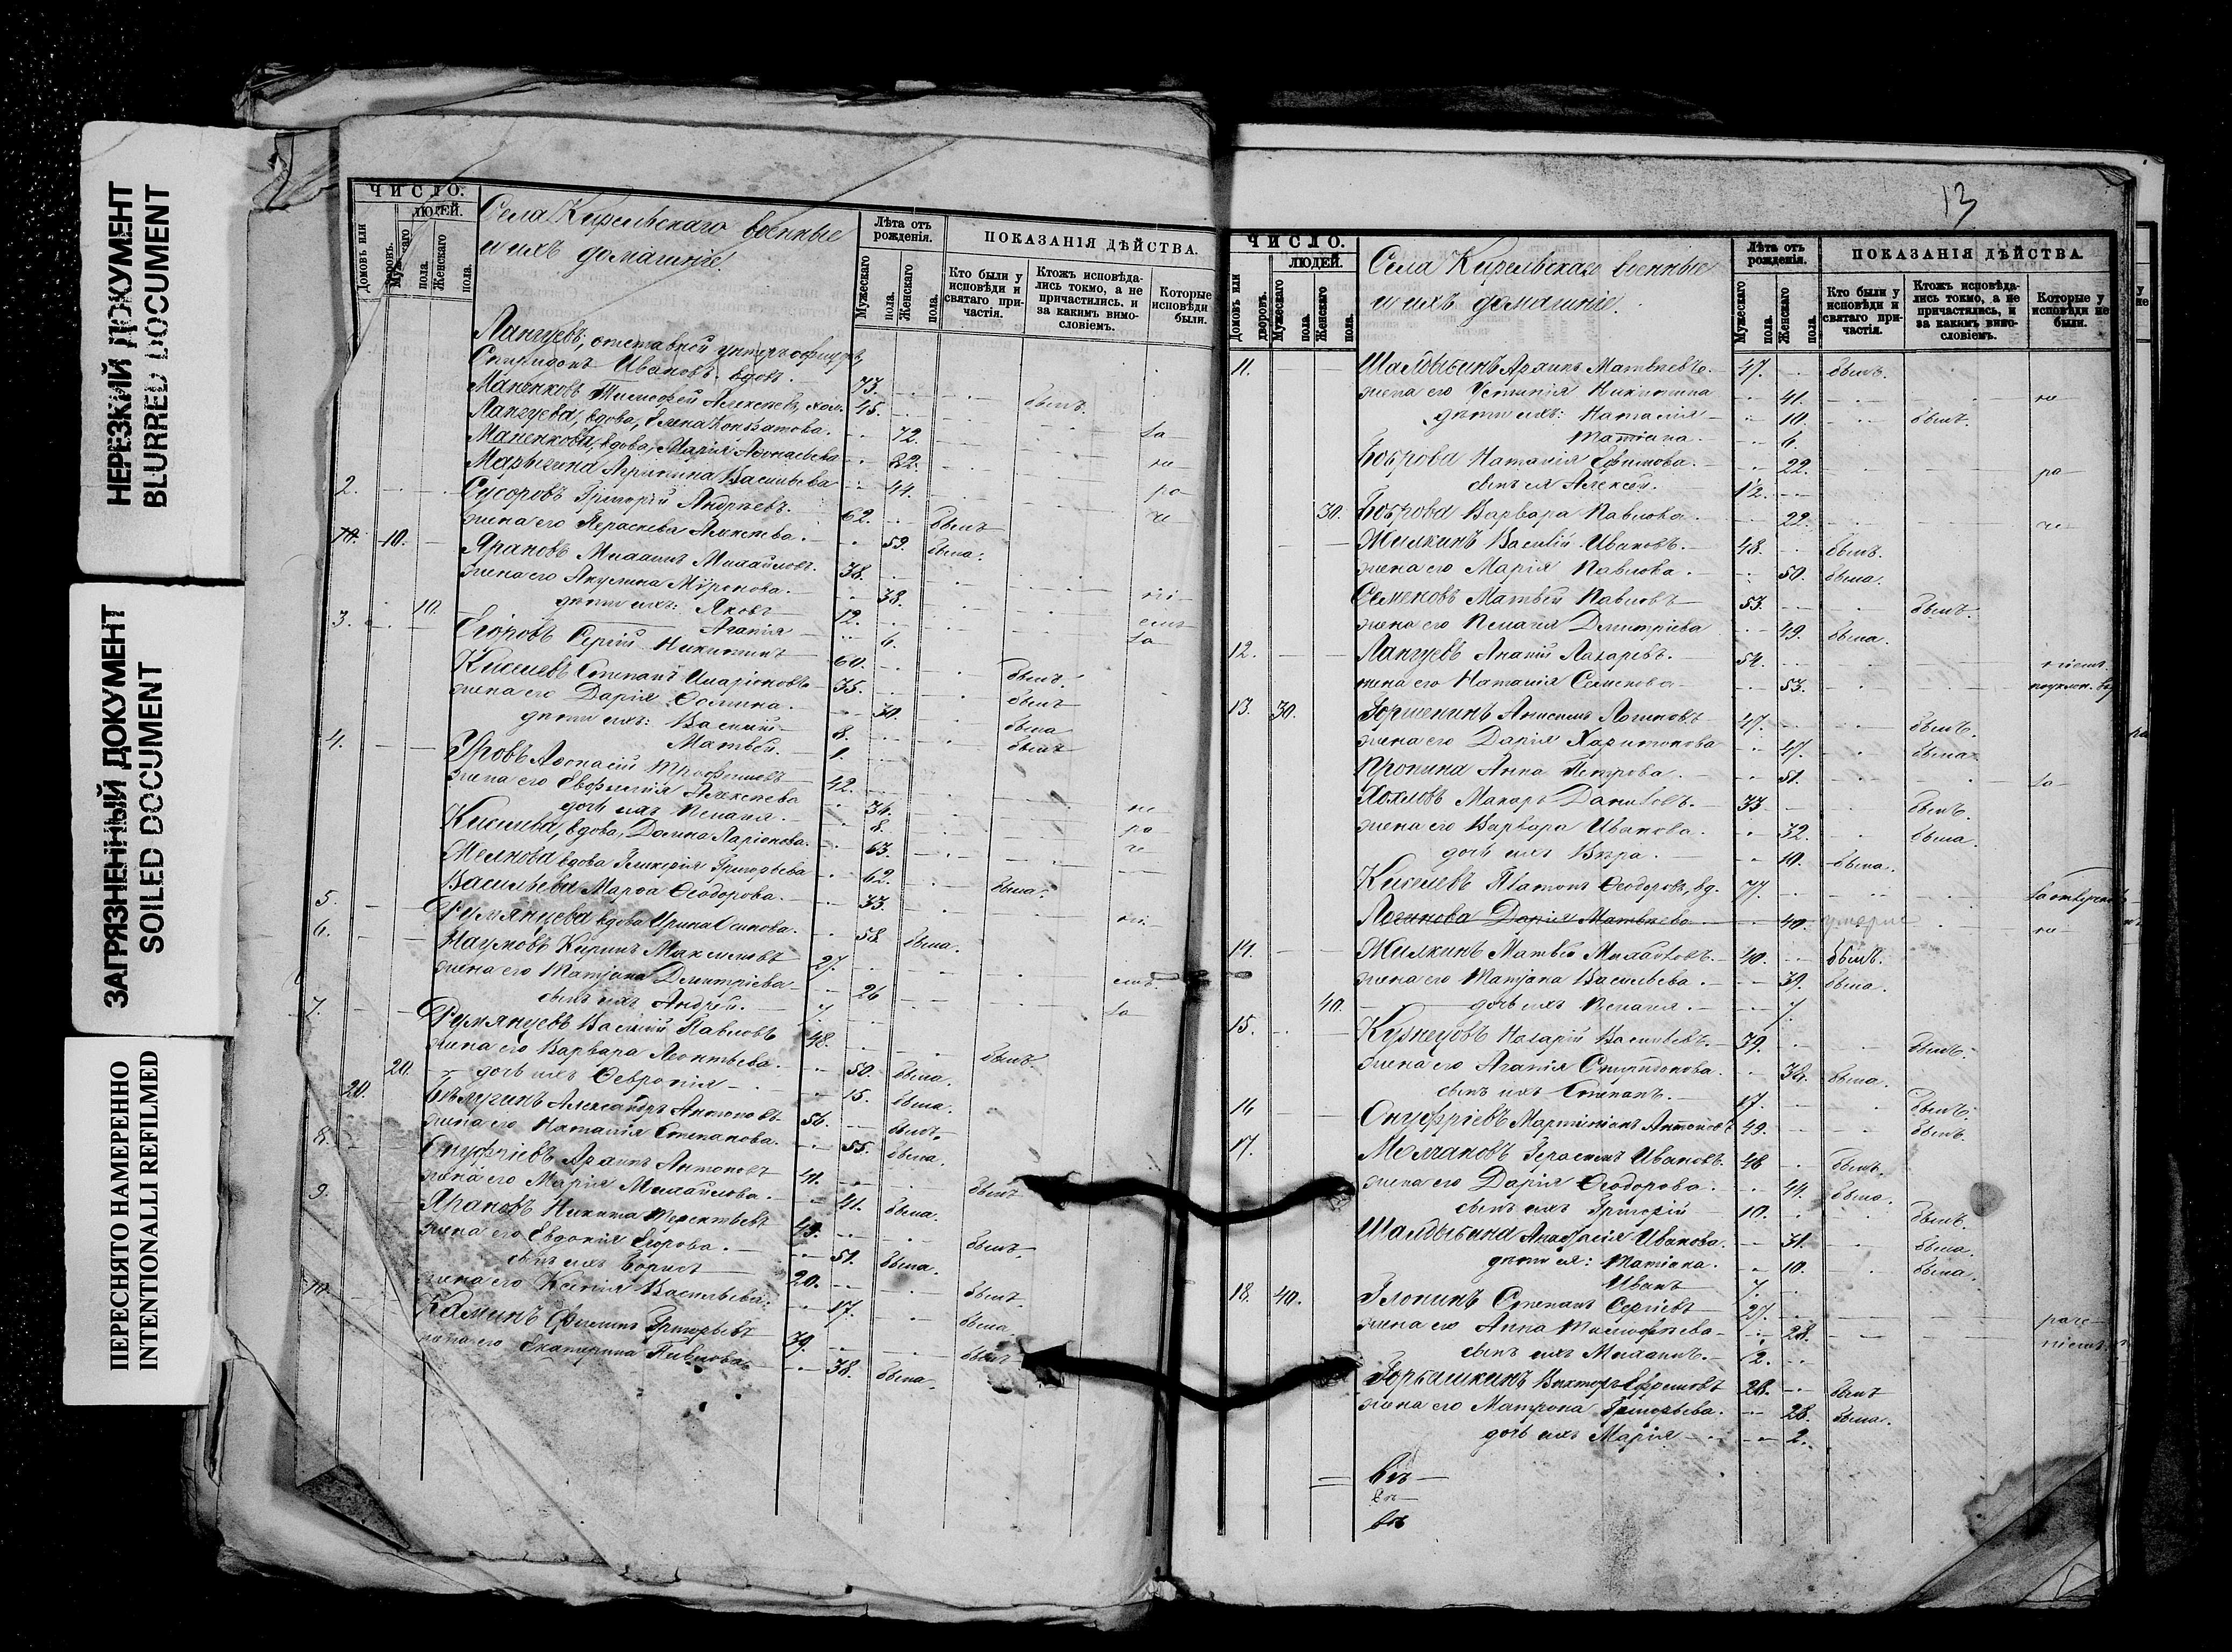 НЕРЕЗКИЙ ДОКУМЕНТ
BLURRED DOCUMENT
ЗАГРЯЗНЕННЫЙ ДОКУМЕНТ
SOILED DOCUMENT
ПЕРЕСНЯТО НАМЕРЕННО
INTENTIONALLI REFILMED
ЧИСЛО.
ЛЮДЕЙ.
Домовъ или дворовъ.
Мужескаго пола.
Женскаго пола.
Села Кирельскаго военные
и ихъ домашніе.
Лѣта отъ рожденія.
Мужескаго пола.
Женскаго пола.
ПОКАЗАНІЯ ДѢЙСТВА.
Кто были у исповѣди и святаго причастія.
Ктожъ исповѣдались токмо, а не причастились, и за какимъ винословіемъ.
Которые исповѣди были.
Лангуевъ, отставной унтеръ офицеръ,
Спиридонъ Ивановъ. вдовъ. 73.
Маненковъ Тимофей Алексѣевъ, хол. 45. былъ.
Лангуева, вдова, Елена 72.
Маненкова, вдова, Марія 82.
Марыгина Агрипина Васильева 44.
2. Сусоровъ Григорій Андреевъ. 62. былъ
жена его Параскева Алексѣева. 59. была.
10. Ярановъ Михаилъ Михайловъ. 38.
жена его Акулина Миронова. 38.
10. дѣти ихъ: Яковъ 12.
Агапія 6.
3. Егоровъ Сергій Никитинъ 60. былъ.
Киселевъ Степанъ Иларіоновъ 35. былъ
жена его Дарія Ѳомина. 30. была
дѣти ихъ: Василій 8. былъ
Матвей. 1.
4. Уровъ Аѳонасій Трофимовъ 42.
жена его Евфимія Алексѣева 34.
дочь ихъ Пелагія. 8.
Киселева, вдова, Домна Ларіонова. 63.
Мелкова вдова Гликерія Григорьева 62. была.
Васильева Марѳа Ѳеодорова. 33.
5. Румянцева вдова Ирина Осипова. 58. была.
6. Наумовъ Кирилъ Максимовъ 27.
жена его Татіана Дмитріева 26
сынъ ихъ Андрей. 7.
7. Румянцевъ Василій Павловъ 48. былъ.
жена его Варвара Леонтьева. 50. была.
20. дочь ихъ Ѳевронія 15. была.
20. Бѣлугинъ Александръ Антоновъ. 56. былъ.
жена его Наталія Степанова. 55. была.
8. Онуфріевъ Архипъ Антоновъ 41. былъ
жена его Марія Михайлова. 41. была.
9. Ярановъ Никита Терентьевъ 49. былъ.
жена его Евдокія Егорова. 51. была.
сынъ ихъ Борисъ 20. былъ.
жена его Ксенія Васильева. 17. была.
10 Каминъ Филипъ Григорьевъ 39. былъ
жена его Екатерина Павлова. 38. была.
13
ЧИСЛО.
ЛЮДЕЙ.
Домовъ или дворовъ.
Мужескаго пола.
Женскаго пола.
Села Кирельскаго военные
и ихъ домашніе.
Лѣта отъ рожденія.
Мужескаго пола.
Женскаго пола.
ПОКАЗАНІЯ ДѢЙСТВА.
Кто были у исповѣди и святаго причастія.
Ктожъ исповѣдались токмо, а не причастились, и за какимъ винословіемъ.
Которые у исповѣди не были.
11. Шалдыбинъ Архипъ Матвѣевъ. 47. былъ.
жена его Устинія Никитина 41. не
дѣти ихъ: Наталія 10. былъ.
Татіана. 6.
Боброва Наталія Ефимова. 22.
сынъ ея Алексѣй. 1/2.
30. Боброва Варвара Павлова. 22.
Жилкинъ Василій Ивановъ. 48. былъ.
жена его Марія Павлова. 50. была.
Семеновъ Матвѣй Павловъ 53. былъ.
жена его Пелагія Дмитріева 49. была.
12. Лангуевъ Ананій Лазаревъ. 54.
жена его Наталія Семенова 53.
13. 30. Горшенинъ Анисимъ Логиновъ 47. былъ.
жена его Дарія Харитонова 47. была.
Пронина Анна Петрова. 51.
Хохловъ Макаръ Даниловъ. 33. былъ.
жена его Варвара Иванова. 32. была.
дочь ихъ Вѣра. 10. была.
Киселевъ Платонъ Ѳеодоровъ, вд. 77.
Логинова Дарія Матвѣева 40.
14. Жилкинъ Матвѣй Михайловъ. 40. былъ.
жена его Татіана Васильева. 39. была.
40. дочь ихъ Пелагія. 7.
15. Кузнецовъ Назарій Васильевъ. 39. былъ.
жена его Агапія Спиридонова. 38. была.
сынъ ихъ Степанъ. 17. былъ.
16 Онуфріевъ Мартиніанъ Антоновъ 49. былъ.
17. Молчановъ Герасимъ Ивановъ. 48 былъ.
жена его Дарія Ѳеодорова. 44. была.
сынъ ихъ Григорій 10. былъ.
Шалдыбина Анастасія Иванова. 31. была.
дѣти ея: Татіана. 10. была.
Иванъ 7.
18. 40. Глонинъ Степанъ Сергіевъ 27.
жена его Анна Тимофѣева 28.
сынъ ихъ Михаилъ. 2.
Горкашкинъ Викторъ Ефремовъ 28. былъ
жена его Матрона Григорьева. 28. была.
дочь ихъ Марія 2.